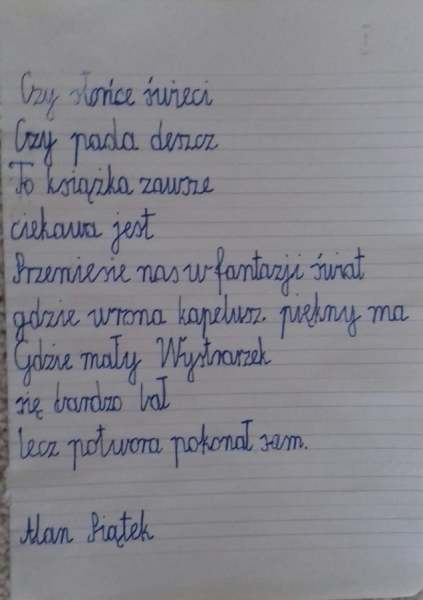 Czy słońce świeci
Czy pada deszcz
To książka zawsze
ciekawa jest
Przeniesie nas w fantazji świat
gdzie wrona kapelusz piękny ma
Gdzie mały Wystraszek
się bardzo bał
lecz potwora pokonał sam.
Alan Piątek